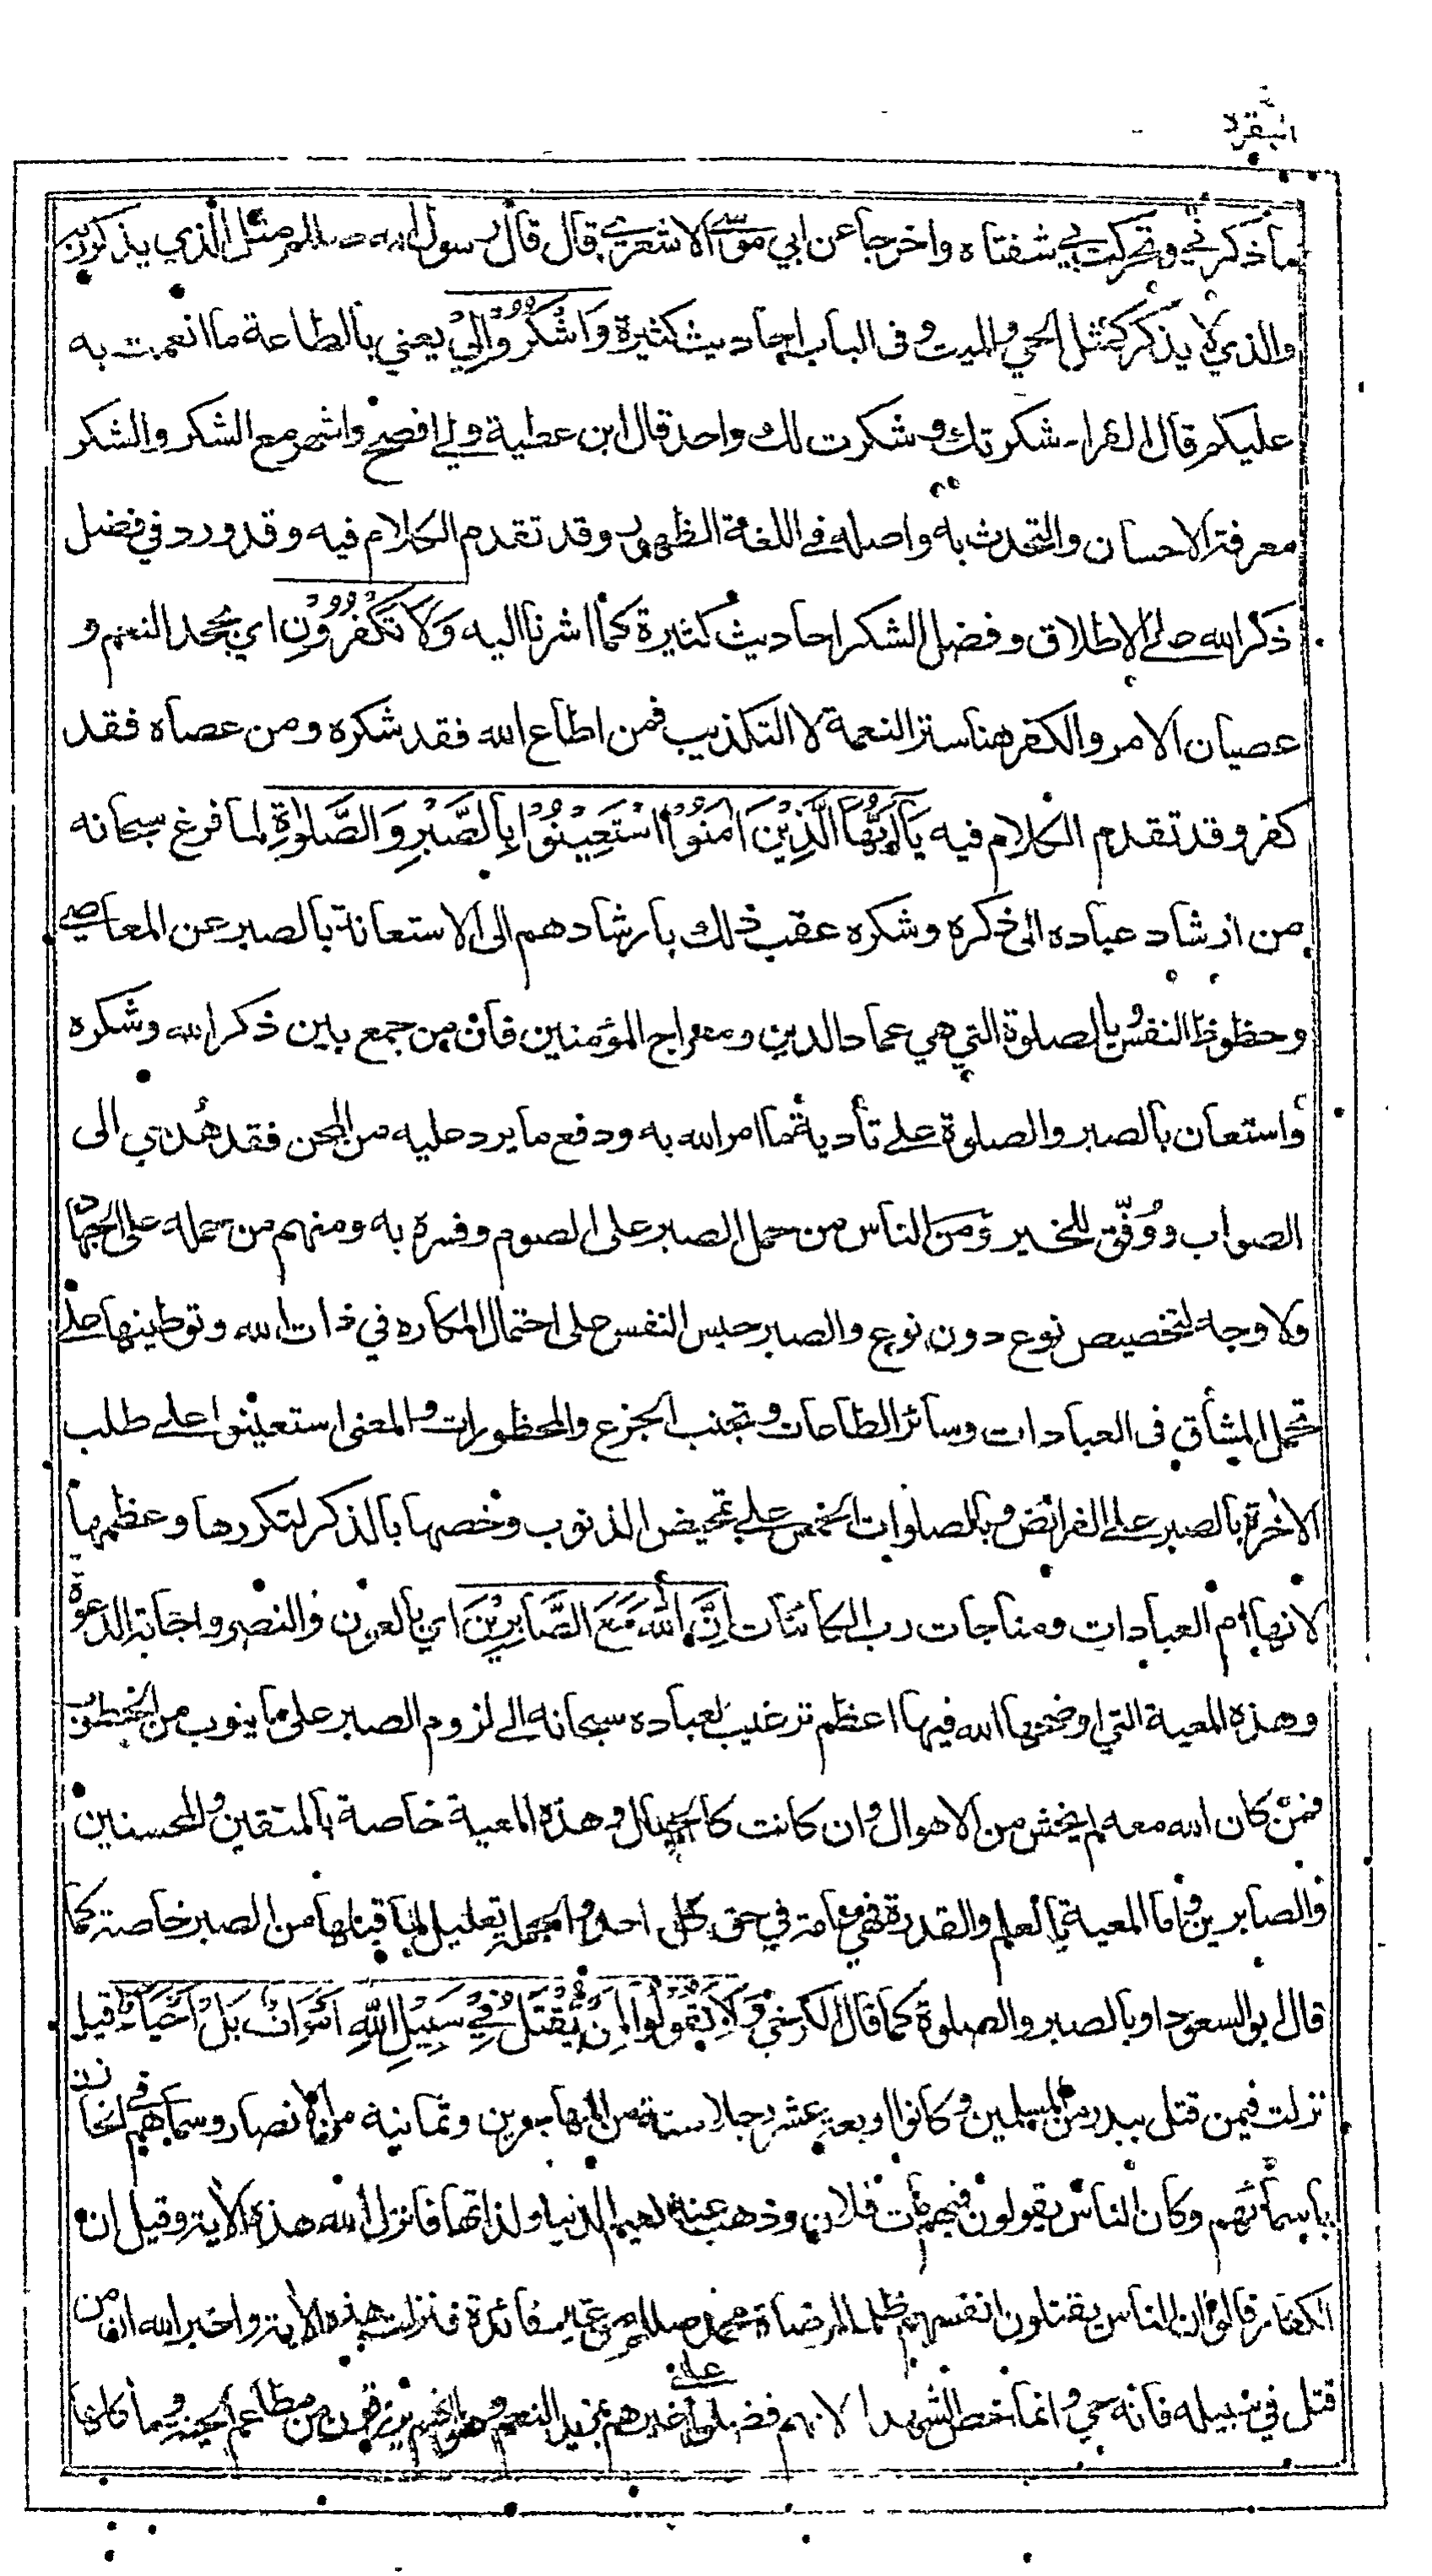 البقرة
ما ذكرني وتحركت بي شفتاه واخرجا عن ابي موسى الاشعري قال قال رسول الله صللم مثل الذي يذكر ربه
والذي لا يذكر كمثل الحي والميت وفى الباب احاديث كثيرة وَاشْكُرُوْا لِيْ يعني بالطاعة ما انعمت به
عليكم قال الفراء شكرتك وشكرت لك واحد قال ابن عطية ولي افصح واشهر مع الشكر والشكر
معرفة الاحسان والتحدث به واصله في اللغة الظهور وقد تقدم الكلام فيه وقد ورد في فضل
ذكر الله على الاطلاق وفضل الشكر احاديث كثيرة كما اشرنا اليه وَلَا تَكْفُرُوْنِ اي بجحد النعم و
عصيان الامر والكفر هنا ستر النعمة لا التكذيب فمن اطاع الله فقد شكره ومن عصاه فقد
كفر وقد تقدم الكلام فيه يَآ اَيُّهَا الَّذِيْنَ اٰمَنُوا اسْتَعِيْنُوْا بِالصَّبْرِ وَالصَّلٰوةِ لما فرغ سبحانه
من ارشاد عباده الى ذكره وشكره عقب ذلك بارشادهم الى الاستعانة بالصبر عن المعاصي
وحظوظ النفس بالصلوة التي هي عماد الدين ومعراج المؤمنين فان من جمع بين ذكر الله وشكره
واستعان بالصبر والصلوة على تأدية ما امر الله به ودفع ما يرد عليه من المحن فقد هُدي الى
الصواب ووُفّق للخير ومن الناس من حمل الصبر على الصوم وفسره به ومنهم من حمله على الجهاد
ولا وجه لتخصيص نوع دون نوع والصبر حبس النفس على احتمال المكاره في ذات الله وتوطينها على
تحمل المشاق فى العبادات وسائر الطاعات وتجنب الجزع والمحظورات والمعنى استعينوا على طلب
الاخرة بالصبر على الفرائض وبالصلوات الخمس على تمحيض الذنوب وخصها بالذكر لتكررها وعظمها
لانها ام العبادات ومناجات رب الكائنات اِنَّ اللّٰهَ مَعَ الصَّابِرِيْنَ اي بالعون والنصر واجابة الدعوة
وهذه المعية التي اوضحها الله فيها اعظم ترغيب لعباده سبحانه الى لزوم الصبر على ما ينوب من الخطوب
فمن كان الله معه لم يخش من الاهوال وان كانت كالجبال وهذه المعية خاصة بالمتقين والمحسنين
والصابرين واما المعية بالعلم والقدرة فهي عامة في حق كل احد والجملة تعليل لما قبلها من الصبر خاصة كما
قال ابو السعود او بالصبر والصلوة كما قال الكرخي وَلَا تَقُوْلُوْا لِمَنْ يُّقْتَلُ فِيْ سَبِيْلِ اللّٰهِ اَمْوَاتٌ بَلْ اَحْيَآءٌ قيل
نزلت فيمن قتل ببدر من المسلمين وكانوا اربعة عشر رجلا ستة من المهاجرين وثمانية من الانصار وسماهم في الخازن
باسمائهم وكان الناس يقولون فيهم مات فلان وذهب عنه نعيم الدنيا ولذاتها فانزل الله هذه الاية وقيل ان
الكفار قالوا ان الناس يقتلون انفسهم ظلما لمرضاة محمد صللم من غير فائدة فنزلت هذه الاية واخبر الله ان من
قتل في سبيله فانه حي وانما خص الشهداء لانهم فضلوا على غيرهم بمزيد النعم وهو انهم يرزقون من مطاعم الجنة وماكلها